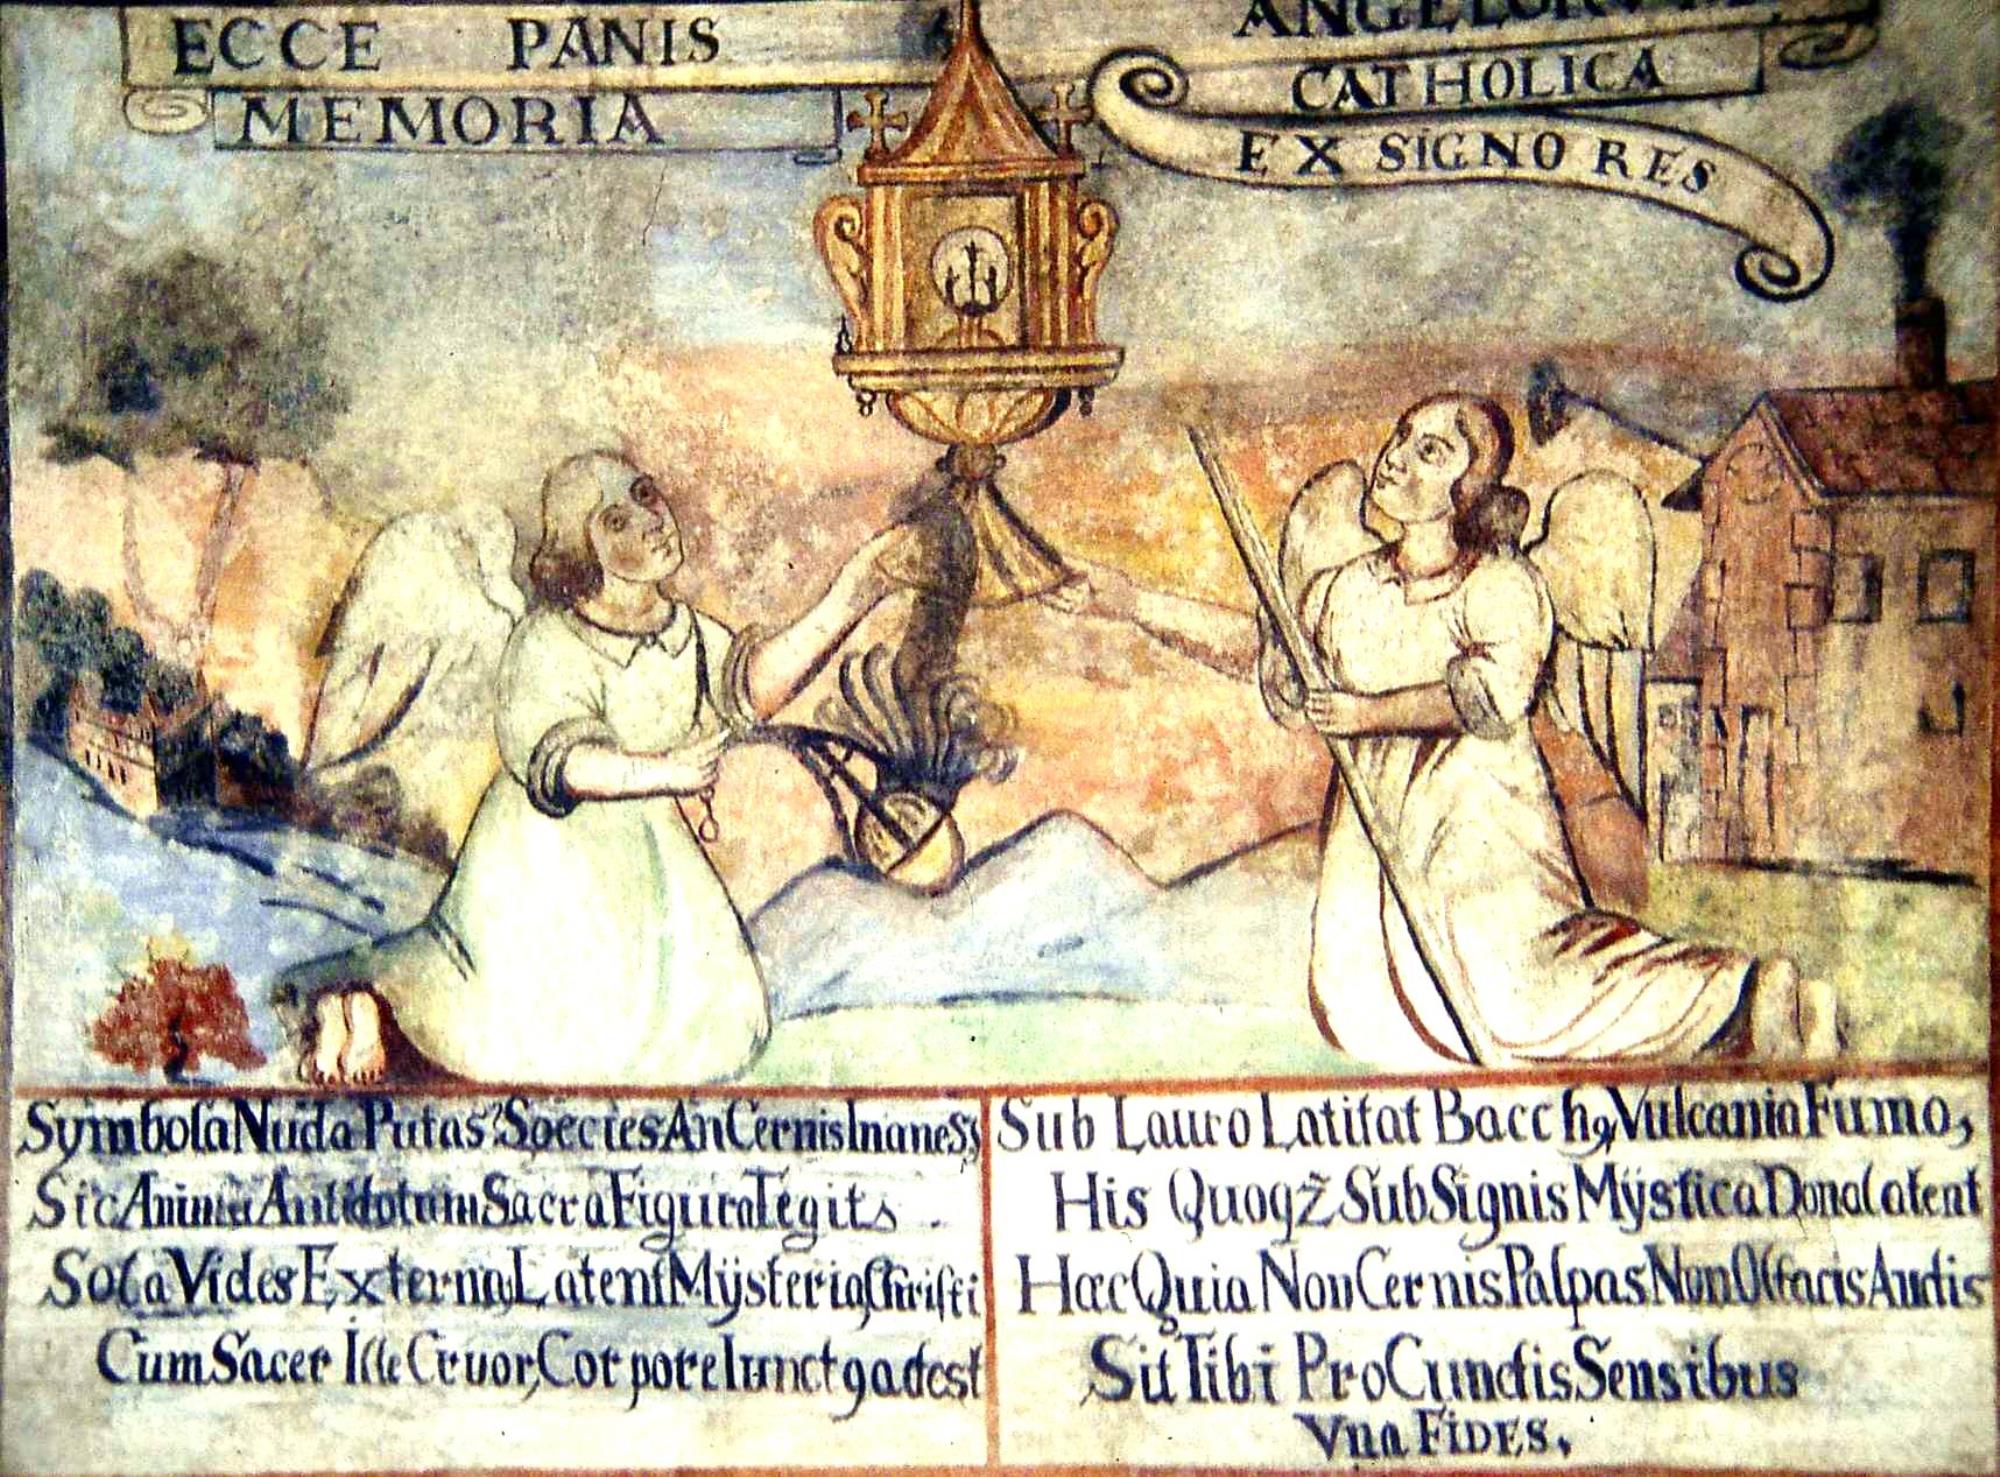 ECCE PANIS ANGELORVM
MEMORIA CATHOLICA
EX SIGNO RES
Symbola Nuda Putas? Species An Cernis Inanes?
Sic Animae Antidotum Sacra Figura Tegit.
Sola Vides Externa, Latent Mÿsteria Christi
Cum Sacer Ille Cruor, Corpore Iunctꝰ adest
Sub Lauro Latitat Bacchꝰ, Vulcania Fumo,
His Quoqz̃ Sub Signis Mÿstica Dona latent
Hæc Quia Non Cernis Palpas Non Olfacis Audis
Sit Tibi Pro Cunctis Sensibus
Vna FIDES.